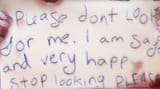 Please dont Look
for me. I am Saf
and very happ
Stop looking PLEAS